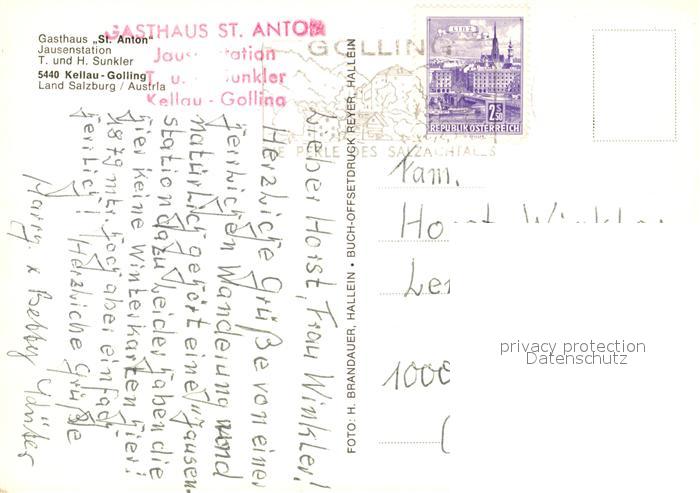 Gasthaus „St. Anton"
Jausenstation
T. und H. Sunkler
5440 Kellau-Golling
Land Salzburg / Austria
GASTHAUS ST. ANTON
Jaus tation
T. u. unkler
Kellau - Golling
GOLLING
PERLE DES SALZACHTALES
LINZ
2 S 50
REPUBLIK ÖSTERREICH
Lieber Horst, Frau Winkler!
Herzliche Grüße von einer
herrlichen Wanderung und
natürlich gehört eine Jausen-
station dazu, leider haben die
hier keine Winterkarten hier!
1879 mtr. hoch aber einfach
herrlich! Herzliche Grüße
Harry & Betty
FOTO: H. BRANDAUER, HALLEIN • BUCH-OFFSETDRUCK REYER, HALLEIN
Fam.
Horst Winkler
1000
privacy protection
Datenschutz